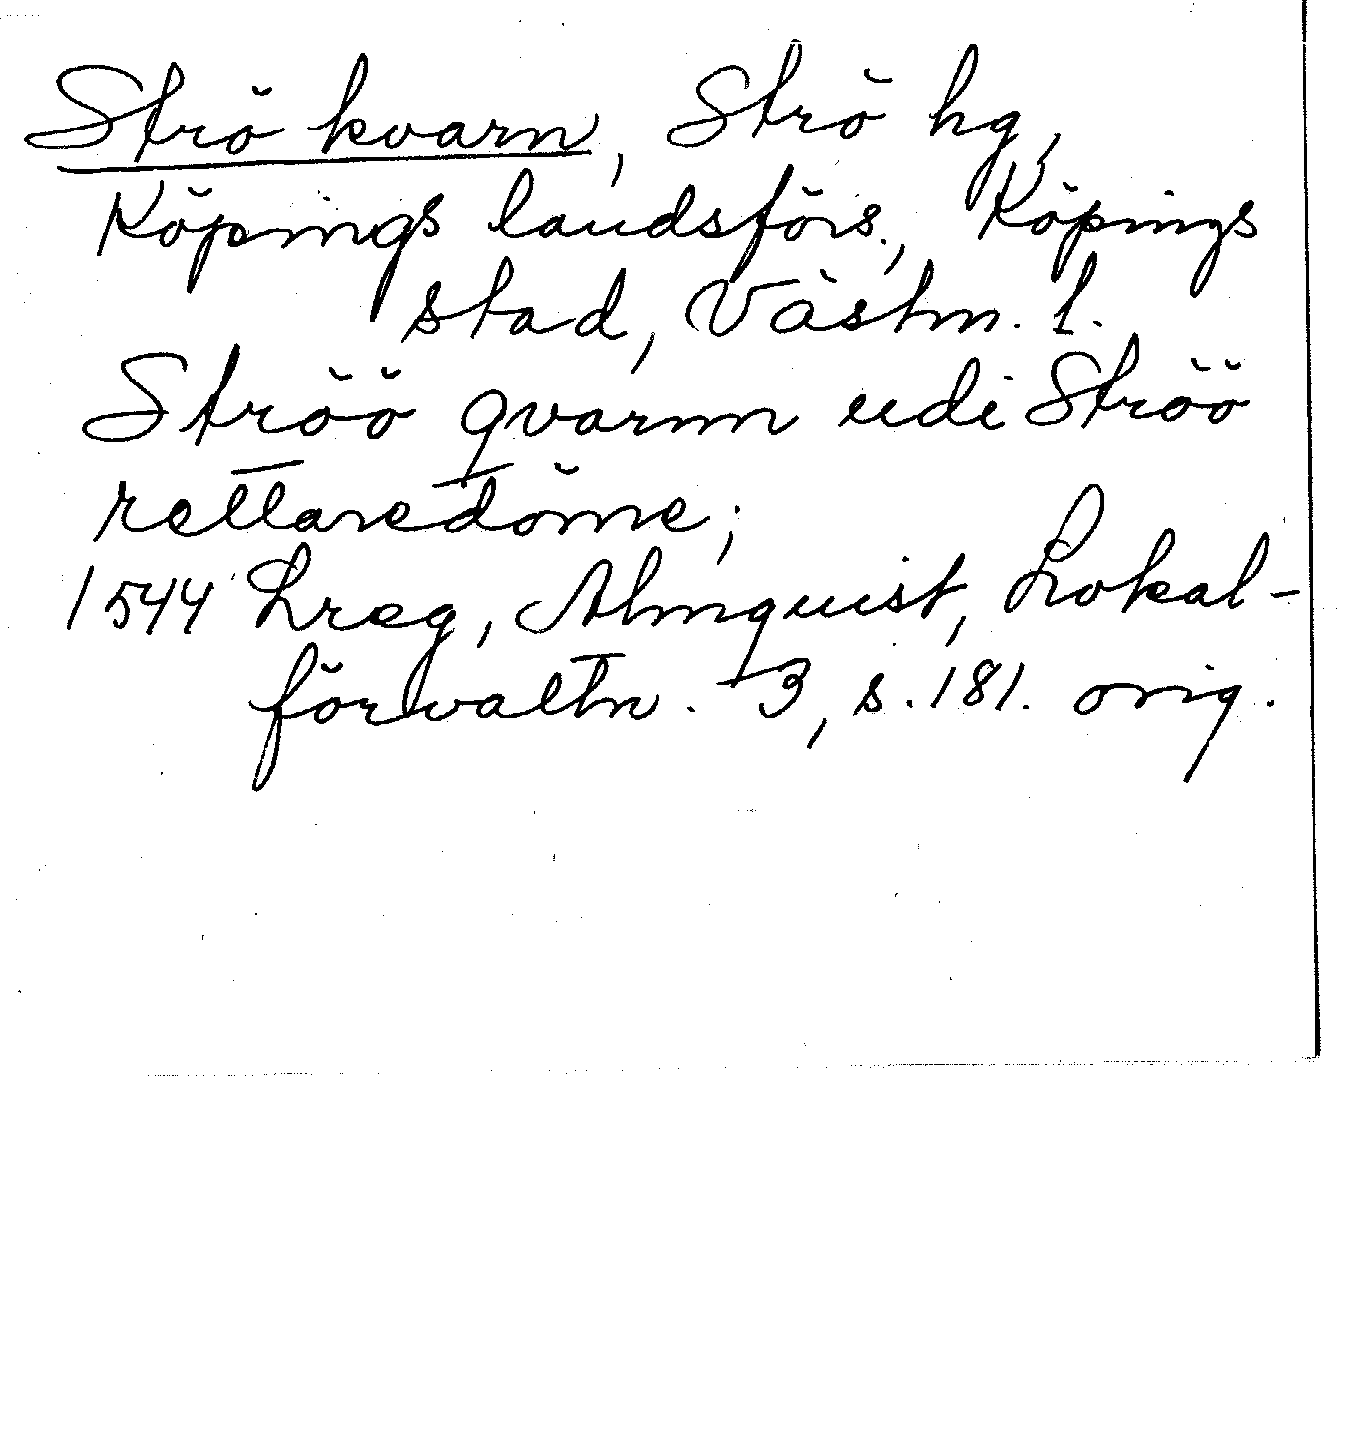 Strö kvarn, Strö hg,
Köpings landsförs., Köpings
stad, Västm. l.
Ströö qvarnn udi Ströö
rettaredöme;
1544 Lreg, Almquist, Lokal-
förvaltn. 3, s. 181. orig.